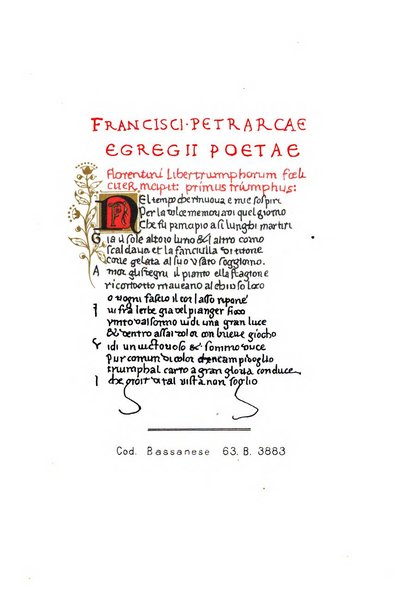 FRANCISCI·PETRARCAE
EGREGII POETAE
florentini Liber triumphorum fœli
citer incipit: primus triumphus:
NEl tempo che rinuova e miei sospiri
Per la dolce memoria di quel giorno
Che fu principio a sì lunghi martiri
Gia il sole al toro l uno & l altro corno
scaldava et la fanciulla di titone
corre gelata al suo usato soggiorno
Amor gli sdegni il pianto e la stagione
ricondotto m aveano al chiuso loco
o vogni fascio il cor lasso ripone
I vi fra l erbe gia del pianger fioco
vinto dal somno vidi una gran luce
& dentro assai dolor con bueve giocho
Vidi un victorioso & sommo duce
Pur com un di color che in campidoglio
triumphal carro a gran gloria conduce
I che gioir di tal vista non soglio
Cod. Bassanese 63. B. 3883